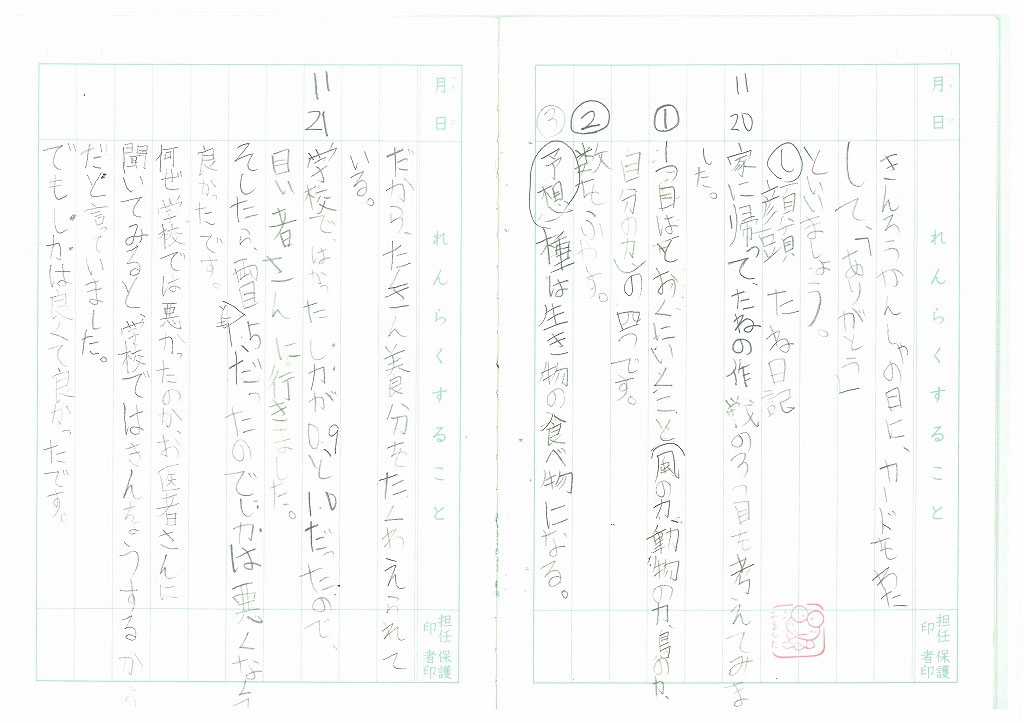 月 日
れんらくすること
担任印
保護者印
きんろうかんしゃの日に、カードをわた
して、「ありがとう」
といいましょう。
① 顔頭 たね日記
11 20
家に帰って、たねの作戦の3つ目を考えてみま
した。
① 1つ目はとおくにいくこと(風の力、動物の力、鳥の力、
自分の力)の四つです。
② 数をふやす。
③ 予想 種は生き物の食べ物になる。
月 日
れんらくすること
担任印
保護者印
だから、たくさん養分をたくわえられて
いる。
11 21
学校で、はかった しカが0.9と1.0だったので、
目い者さんに行きました。
そしたら、両目とも1.5だったのでしカは悪くなく
良かったです。
何ぜ学校では悪かったのか、お医者さんに
聞いてみると、学校ではきんちょうするから
だと言っていました。
でもしカは良くて良かったです。